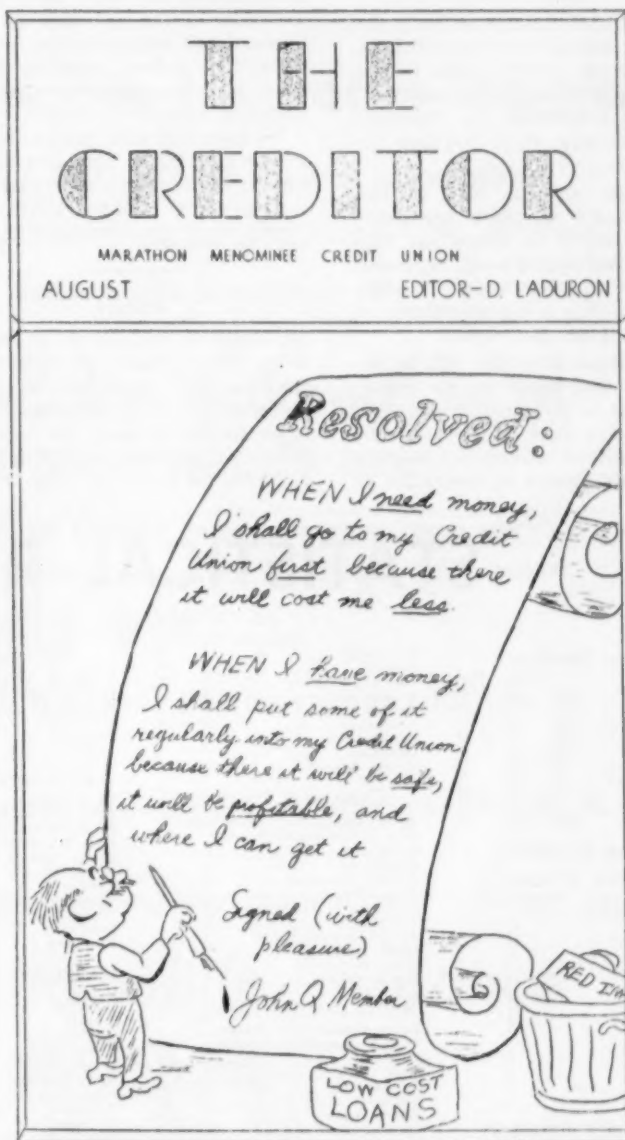 THE
CREDITOR
MARATHON MENOMINEE CREDIT UNION
AUGUST EDITOR-D. LADURON
Resolved:
WHEN I need money,
I shall go to my Credit
Union first because there
it will cost me less.
WHEN I have money,
I shall put some of it
regularly into my Credit Union
because there it will be safe,
it will be profitable, and
where I can get it
Signed (with
pleasure)
John Q Member
LOW COST
LOANS
RED